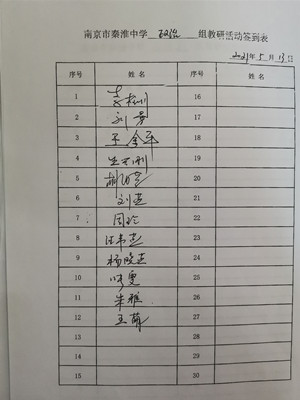 南京市秦淮中学 政治 组教研活动签到表
2021年5月13日
序号 姓名 序号 姓名
1 16
2 刘芳 17
3 王金平 18
4 19
5 20
6 刘莲 21
7 周玲 22
8 汪韦志 23
9 杨晓莲 24
10 25
11 朱雅 26
12 王萌 27
13 28
14 29
15 30